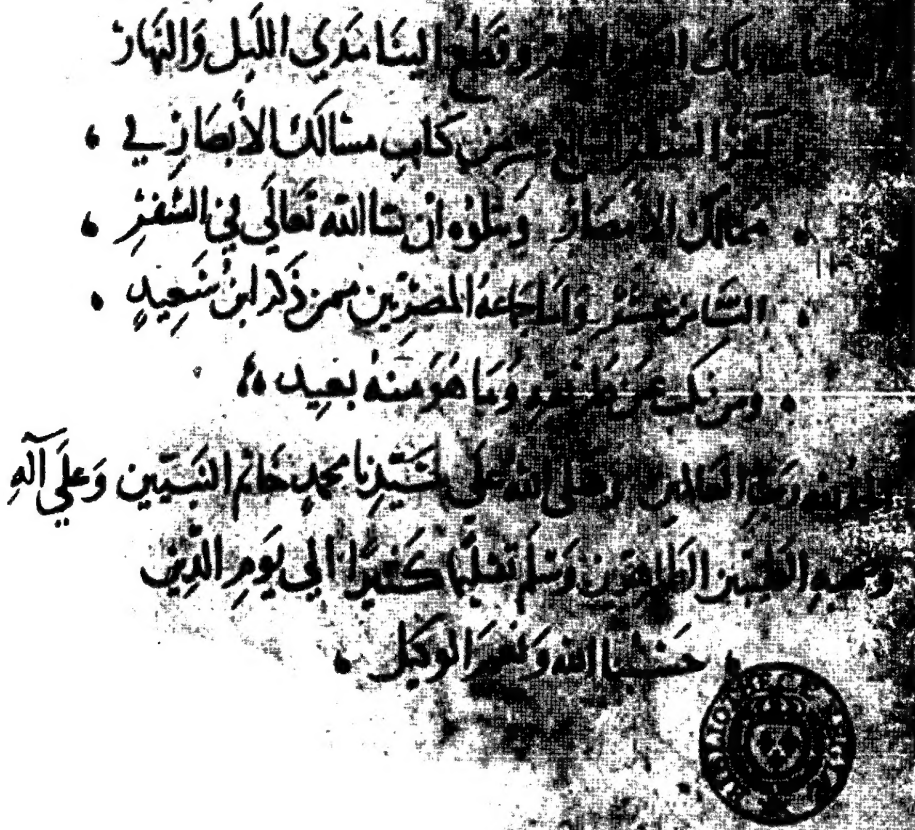 ذلك وقطع إلينا مدي الليل والنهار
آخر السفر السابع عشر من كتاب مسالك الأبصار في
ممالك الأمصار ويتلوه ان شا الله تعالي في السفر
الثامن عشر وأما جماعة المصريين ممن ذكر ابن سعيد
ومن نكب عن طريقه وما هو منه بعيد
الحمد لله رب العالمين وصلى الله علي سيدنا محمد خاتم النبيين وعلي آله
وصحبه الطيبين الطاهرين وسلم تسليما كثيرا الي يوم الدين
حسبنا الله ونعم الوكيل